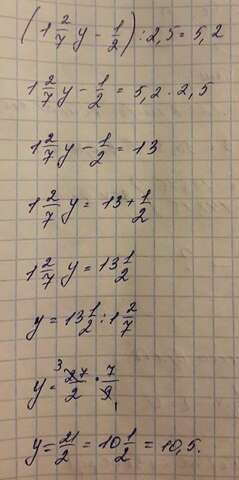 (1 2/7 y - 1/2) : 2,5 = 5,2
1 2/7 y - 1/2 = 5,2 · 2,5
1 2/7 y - 1/2 = 13
1 2/7 y = 13 + 1/2
1 2/7 y = 13 1/2
y = 13 1/2 : 1 2/7
y = ³27/2 · 7/9₁
y = 21/2 = 10 1/2 = 10,5.